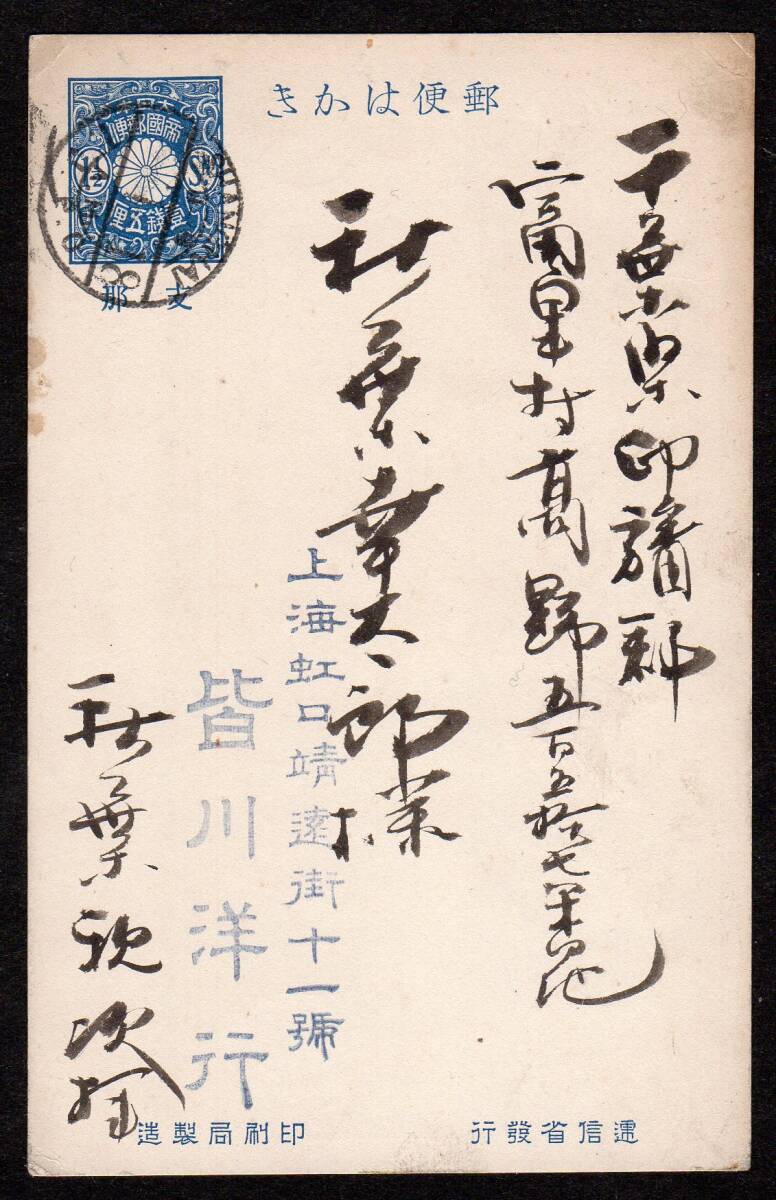 郵便はかき
帝國郵便
1½ Sn
壹錢五里
支那
SHANGHAI
千葉県印旛郡
富里村高野五百五拾七番地
秋葉幸太郎様
上海虹口靖遠街十一號
皆川洋行
秋葉
次
遞信省發行
印刷局製造